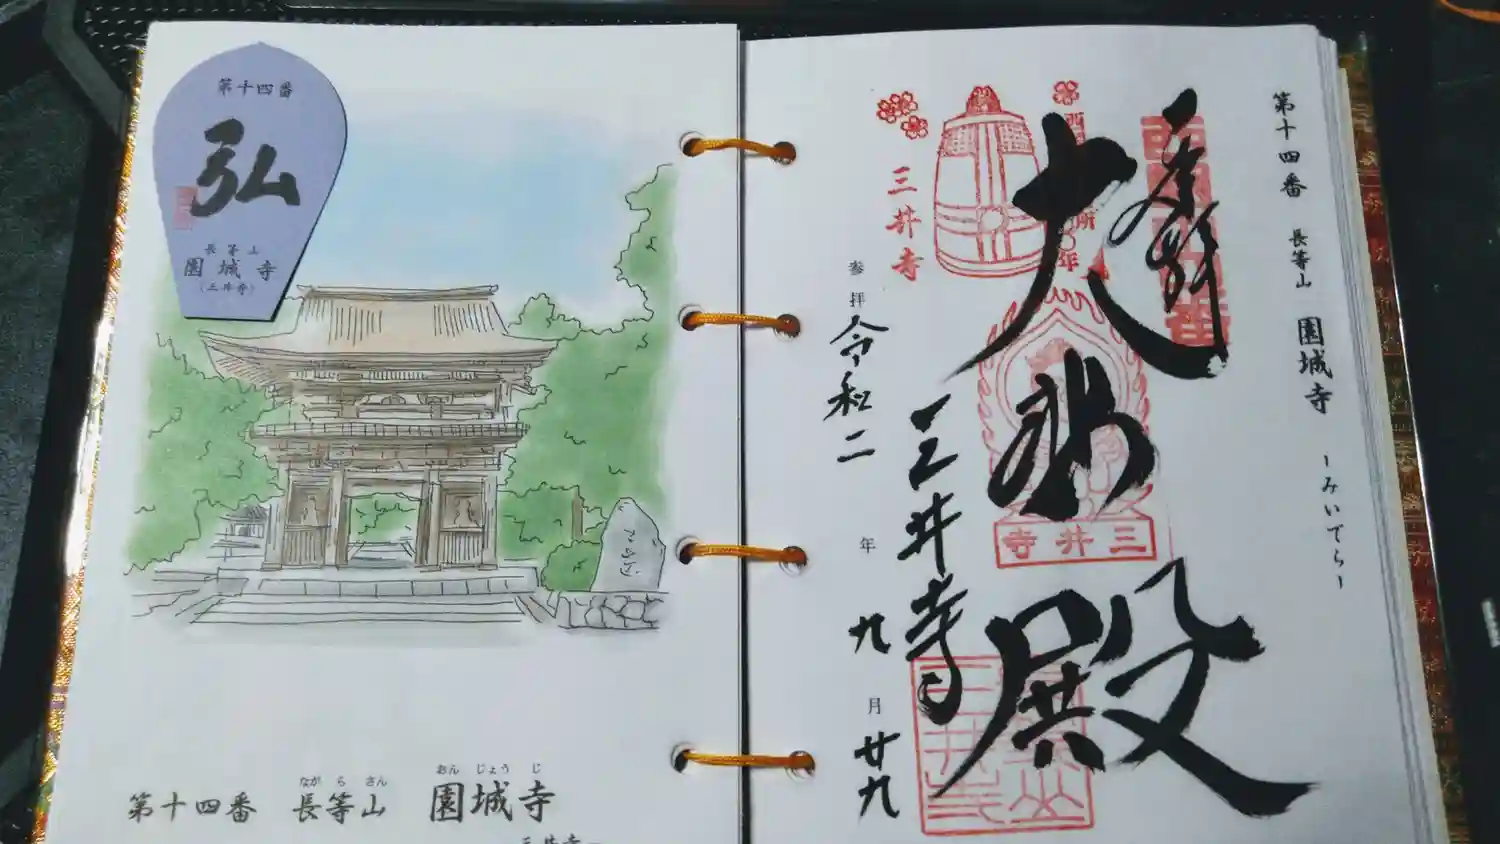 第十四番
弘
長等山
園城寺
(三井寺)
第十四番 長等山 園城寺
なが ら さん おん じょう じ
第十四番 長等山 園城寺
ーみいでらー
奉拝
大悲殿
三井寺
三井寺
三井寺
参拝 令和二年九月廿九